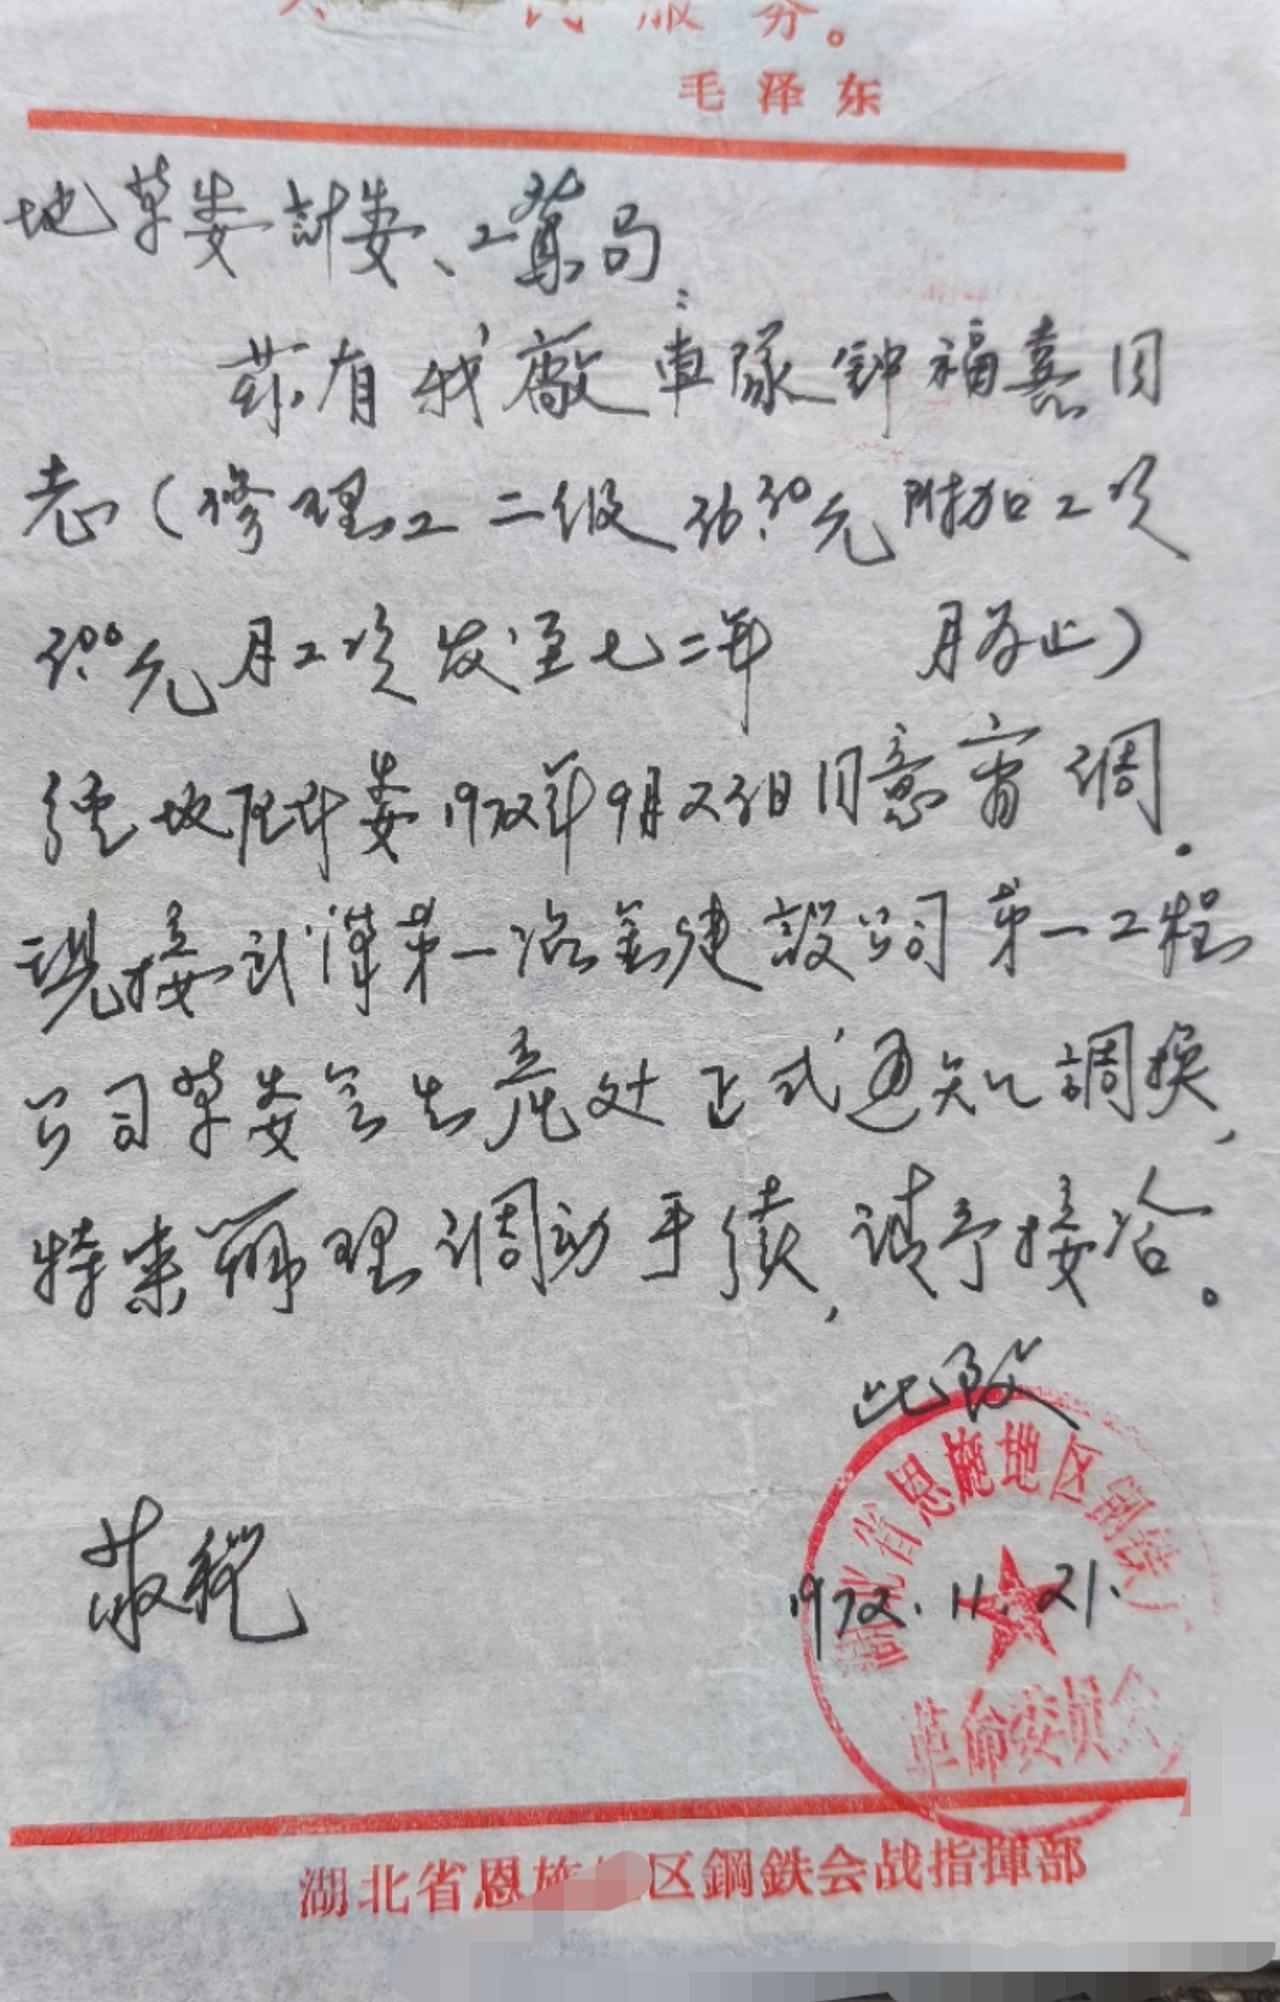 民服务。
毛泽东
地革委計委、工業局:
茲有我廠車隊钟福喜同
志(修理工二级 元附加工资
元月工资发至七二年 月为止)
經地区计委1972年9月 日同意商调.
現接武漢第一冶金建設公司第一工程
公司革委会生産处正式通知調换,
特来辦理调动手续,请予接洽。
此致
敬礼
1972.11.21.
湖北省恩施地区钢铁厂
革命委员会
湖北省恩施 区鋼鉄会战指揮部